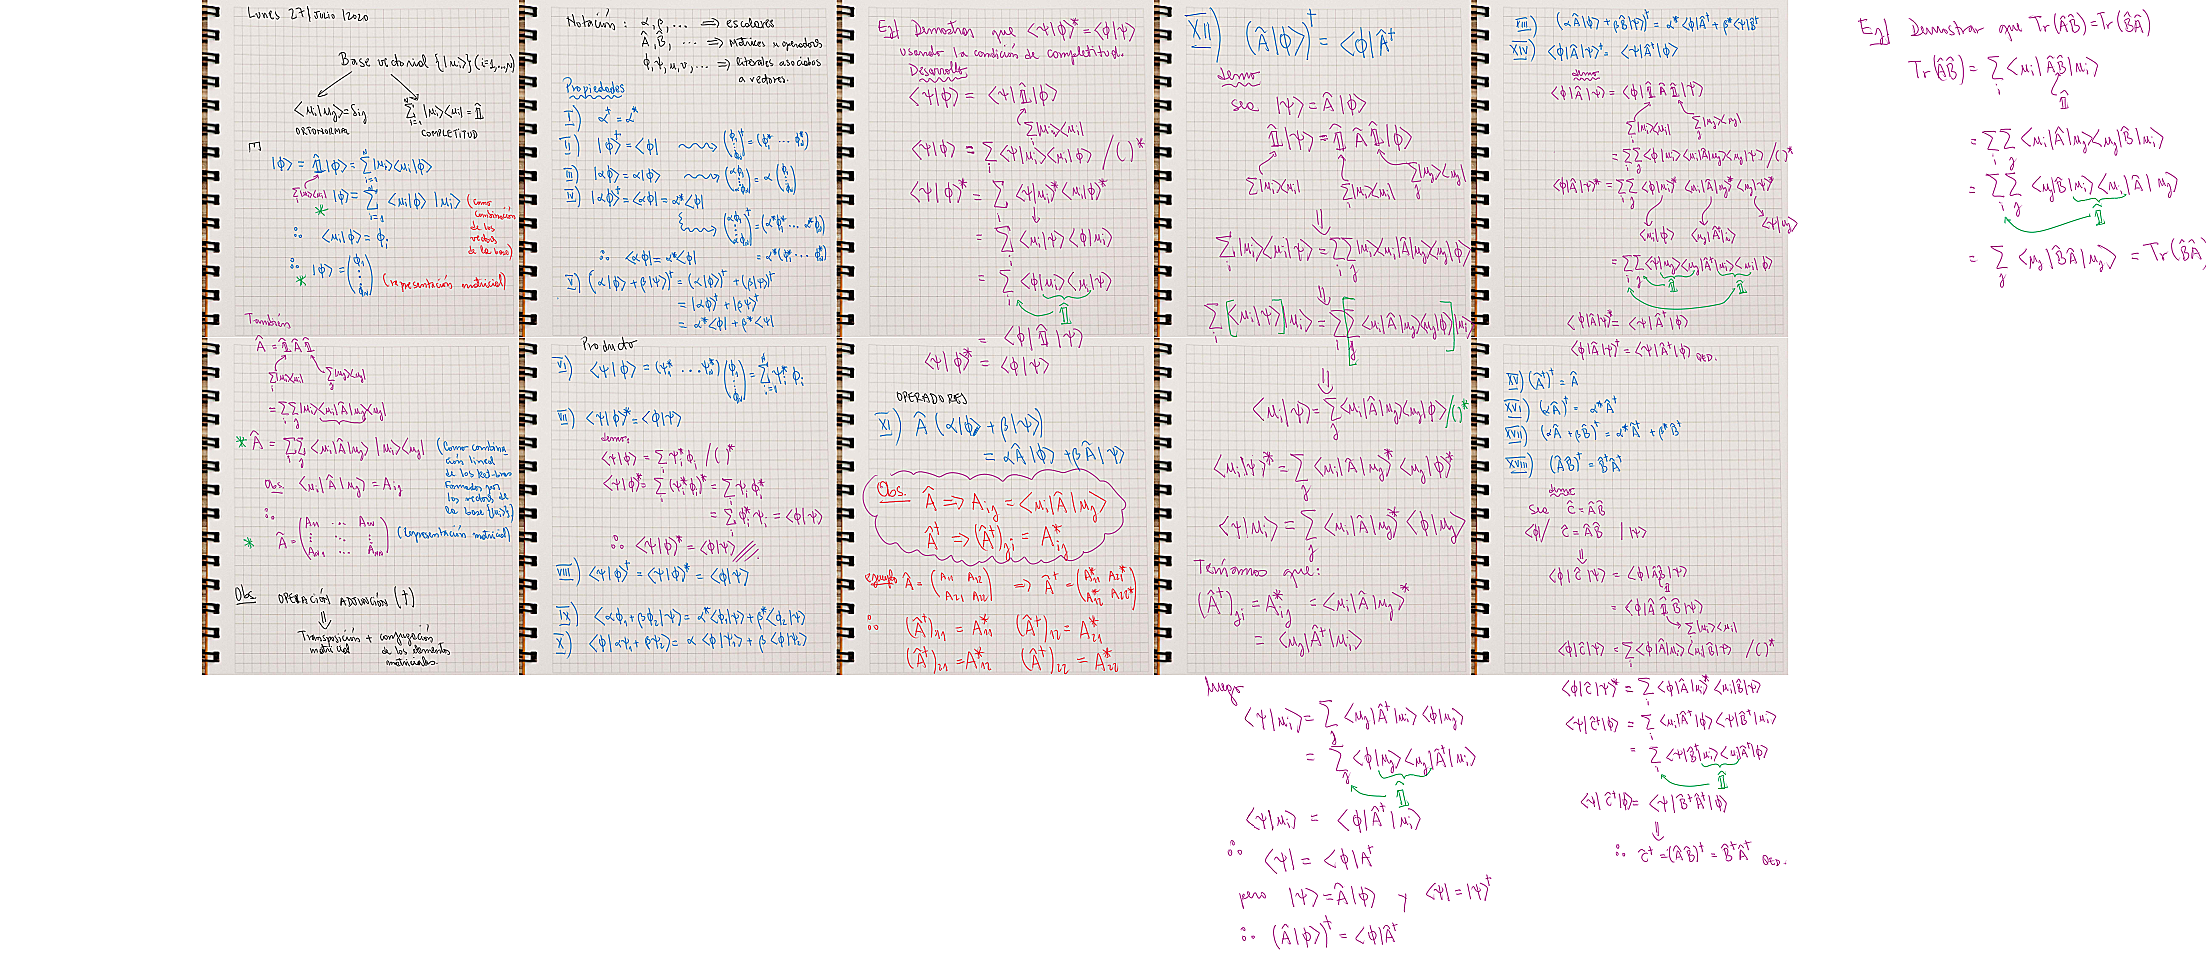 Lunes 27/Julio/2020
Base vectorial {|u_i>} (i=1,...,N)
<u_i|u_j> = δ_ij
ORTONORMAL
Σ_{i=1}^N |u_i><u_i| = 𝟙̂
COMPLETITUD
|ϕ> = 𝟙̂|ϕ> = Σ_{i=1}^N |u_i><u_i|ϕ>
Σ|u_i><u_i| |ϕ> = Σ_{i=1}^N <u_i|ϕ> |u_i> (como combinación de los vectores de la base)
*
∴ <u_i|ϕ> = ϕ_i
∴ |ϕ> = (ϕ_1 ⋮ ϕ_N) (representación matricial)
*
También
Â = 𝟙̂ Â 𝟙̂
Σ_i |u_i><u_i| Σ_j |u_j><u_j|
= Σ_i Σ_j |u_i><u_i|Â|u_j><u_j|
* Â = Σ_i Σ_j <u_i|Â|u_j> |u_i><u_j| (como combinación lineal de los ket-bras formados por los vectores de la base {|u_i>})
Obs. <u_i|Â|u_j> = A_ij
∴
* Â = (A_11 ... A_1N ⋮ ⋮ A_N1 ... A_NN) (representación matricial)
Obs OPERACIÓN ADJUNCIÓN (†)
⇓
Transposición matricial + conjugación de los elementos matriciales.
Notación: α, β, ... ⇒ escalares
Â, B̂, ... ⇒ Matrices u operadores
ϕ, ψ, u, v, ... ⇒ literales asociados a vectores.
Propiedades
I) α† = α*
II) |ϕ>† = <ϕ| ⇝ (ϕ_1 ⋮ ϕ_N)† = (ϕ_1* ... ϕ_N*)
III) |αϕ> = α|ϕ> ⇝ (αϕ_1 ⋮ αϕ_N) = α (ϕ_1 ⋮ ϕ_N)
IV) |αϕ>† = <αϕ| = α*<ϕ|
⇝ (αϕ_1 ⋮ αϕ_N)† = (α*ϕ_1* ... α*ϕ_N*)
∴ <αϕ| = α*<ϕ| = α*(ϕ_1* ... ϕ_N*)
V) (α|ϕ> + β|ψ>)† = (α|ϕ>)† + (β|ψ>)†
= |αϕ>† + |βψ>†
= α*<ϕ| + β*<ψ|
Producto
VI) <ψ|ϕ> = (ψ_1* ... ψ_N*) (ϕ_1 ⋮ ϕ_N) = Σ_{i=1}^N ψ_i* ϕ_i
VII) <ψ|ϕ>* = <ϕ|ψ>
demo:
<ψ|ϕ> = Σ_i ψ_i* ϕ_i / ( )*
<ψ|ϕ>* = Σ_i (ψ_i* ϕ_i)* = Σ_i ψ_i ϕ_i*
= Σ_i ϕ_i* ψ_i = <ϕ|ψ>
∴ <ψ|ϕ>* = <ϕ|ψ>
VIII) <ψ|ϕ>† = <ψ|ϕ>* = <ϕ|ψ>
IX) <αϕ_1 + βϕ_2|ψ> = α*<ϕ_1|ψ> + β*<ϕ_2|ψ>
X) <ϕ|αψ_1 + βψ_2> = α<ϕ|ψ_1> + β<ϕ|ψ_2>
Ej] Demostrar que <ψ|ϕ>* = <ϕ|ψ>
usando la condición de completitud.
Desarrollo
<ψ|ϕ> = <ψ|𝟙̂|ϕ>
Σ_i |u_i><u_i|
<ψ|ϕ> = Σ_i <ψ|u_i><u_i|ϕ> / ( )*
<ψ|ϕ>* = Σ_i <ψ|u_i>* <u_i|ϕ>*
= Σ_i <u_i|ψ><ϕ|u_i>
= Σ_i <ϕ|u_i><u_i|ψ>
𝟙̂
= <ϕ|𝟙̂|ψ>
<ψ|ϕ>* = <ϕ|ψ>
OPERADORES
XI) Â (α|ϕ> + β|ψ>)
= αÂ|ϕ> + βÂ|ψ>
Obs. Â ⇒ A_ij = <u_i|Â|u_j>
Â† ⇒ (Â†)_ji = A*_ij
ejemplo Â = (A_11 A_12 A_21 A_22) ⇒ Â† = (A*_11 A*_21 A*_12 A*_22)
∴ (Â†)_11 = A*_11 (Â†)_12 = A*_21
(Â†)_21 = A*_12 (Â†)_22 = A*_22
XII) (Â|ϕ>)† = <ϕ|Â†
demo
sea |ψ> = Â|ϕ>
𝟙̂|ψ> = 𝟙̂ Â 𝟙̂|ϕ>
Σ_i |u_i><u_i| Σ_i |u_i><u_i| Σ_j |u_j><u_j|
⇓
Σ_i |u_i><u_i|ψ> = Σ_i Σ_j |u_i><u_i|Â|u_j><u_j|ϕ>
⇓
Σ_i [<u_i|ψ>] |u_i> = Σ_i [Σ_j <u_i|Â|u_j><u_j|ϕ>] |u_i>
⇓
<u_i|ψ> = Σ_j <u_i|Â|u_j><u_j|ϕ> / ( )*
<u_i|ψ>* = Σ_j <u_i|Â|u_j>* <u_j|ϕ>*
<ψ|u_i> = Σ_j <u_i|Â|u_j>* <ϕ|u_j>
Teníamos que:
(Â†)_ji = A*_ij = <u_i|Â|u_j>*
= <u_j|Â†|u_i>
luego
<ψ|u_i> = Σ_j <u_j|Â†|u_i><ϕ|u_j>
= Σ_j <ϕ|u_j><u_j|Â†|u_i>
𝟙̂
<ψ|u_i> = <ϕ|Â†|u_i>
∴ <ψ| = <ϕ|A†
pero |ψ> = Â|ϕ> y <ψ| = |ψ>†
∴ (Â|ϕ>)† = <ϕ|Â†
XIII) (αÂ|ϕ> + βB̂|ψ>)† = α*<ϕ|Â† + β*<ψ|B̂†
XIV) <ϕ|Â|ψ>† = <ψ|Â†|ϕ>
demo
<ϕ|Â|ψ> = <ϕ|𝟙̂ Â 𝟙̂|ψ>
Σ_i |u_i><u_i| Σ_j |u_j><u_j|
= Σ_i Σ_j <ϕ|u_i><u_i|Â|u_j><u_j|ψ> / ( )*
<ϕ|Â|ψ>* = Σ_i Σ_j <ϕ|u_i>* <u_i|Â|u_j>* <u_j|ψ>*
<u_i|ϕ> <u_j|Â†|u_i> <ψ|u_j>
= Σ_i Σ_j <ψ|u_j><u_j|Â†|u_i><u_i|ϕ>
𝟙̂ 𝟙̂
<ϕ|Â|ψ>* = <ψ|Â†|ϕ>
<ϕ|Â|ψ>† = <ψ|Â†|ϕ> QED.
XV) (Â†)† = Â
XVI) (αÂ)† = α*Â†
XVII) (αÂ + βB̂)† = α*Â† + β*B̂†
XVIII) (ÂB̂)† = B̂†Â†
demo
Sea Ĉ = ÂB̂
<ϕ| / Ĉ = ÂB̂ / |ψ>
⇓
<ϕ|Ĉ|ψ> = <ϕ|ÂB̂|ψ>
𝟙̂
= <ϕ|Â 𝟙̂ B̂|ψ>
Σ_i |u_i><u_i|
<ϕ|Ĉ|ψ> = Σ_i <ϕ|Â|u_i><u_i|B̂|ψ> / ( )*
<ϕ|Ĉ|ψ>* = Σ_i <ϕ|Â|u_i>* <u_i|B̂|ψ>*
<ψ|Ĉ†|ϕ> = Σ_i <u_i|Â†|ϕ><ψ|B̂†|u_i>
= Σ_i <ψ|B̂†|u_i><u_i|Â†|ϕ>
𝟙̂
<ψ|Ĉ†|ϕ> = <ψ|B̂†Â†|ϕ>
⇓
∴ Ĉ† = (ÂB̂)† = B̂†Â† QED.
Ej] Demostrar que Tr(ÂB̂) = Tr(B̂Â)
Tr(ÂB̂) = Σ_i <u_i|ÂB̂|u_i>
𝟙̂
= Σ_i Σ_j <u_i|Â|u_j><u_j|B̂|u_i>
= Σ_i Σ_j <u_j|B̂|u_i><u_i|Â|u_j>
𝟙̂
= Σ_j <u_j|B̂Â|u_j> = Tr(B̂Â)